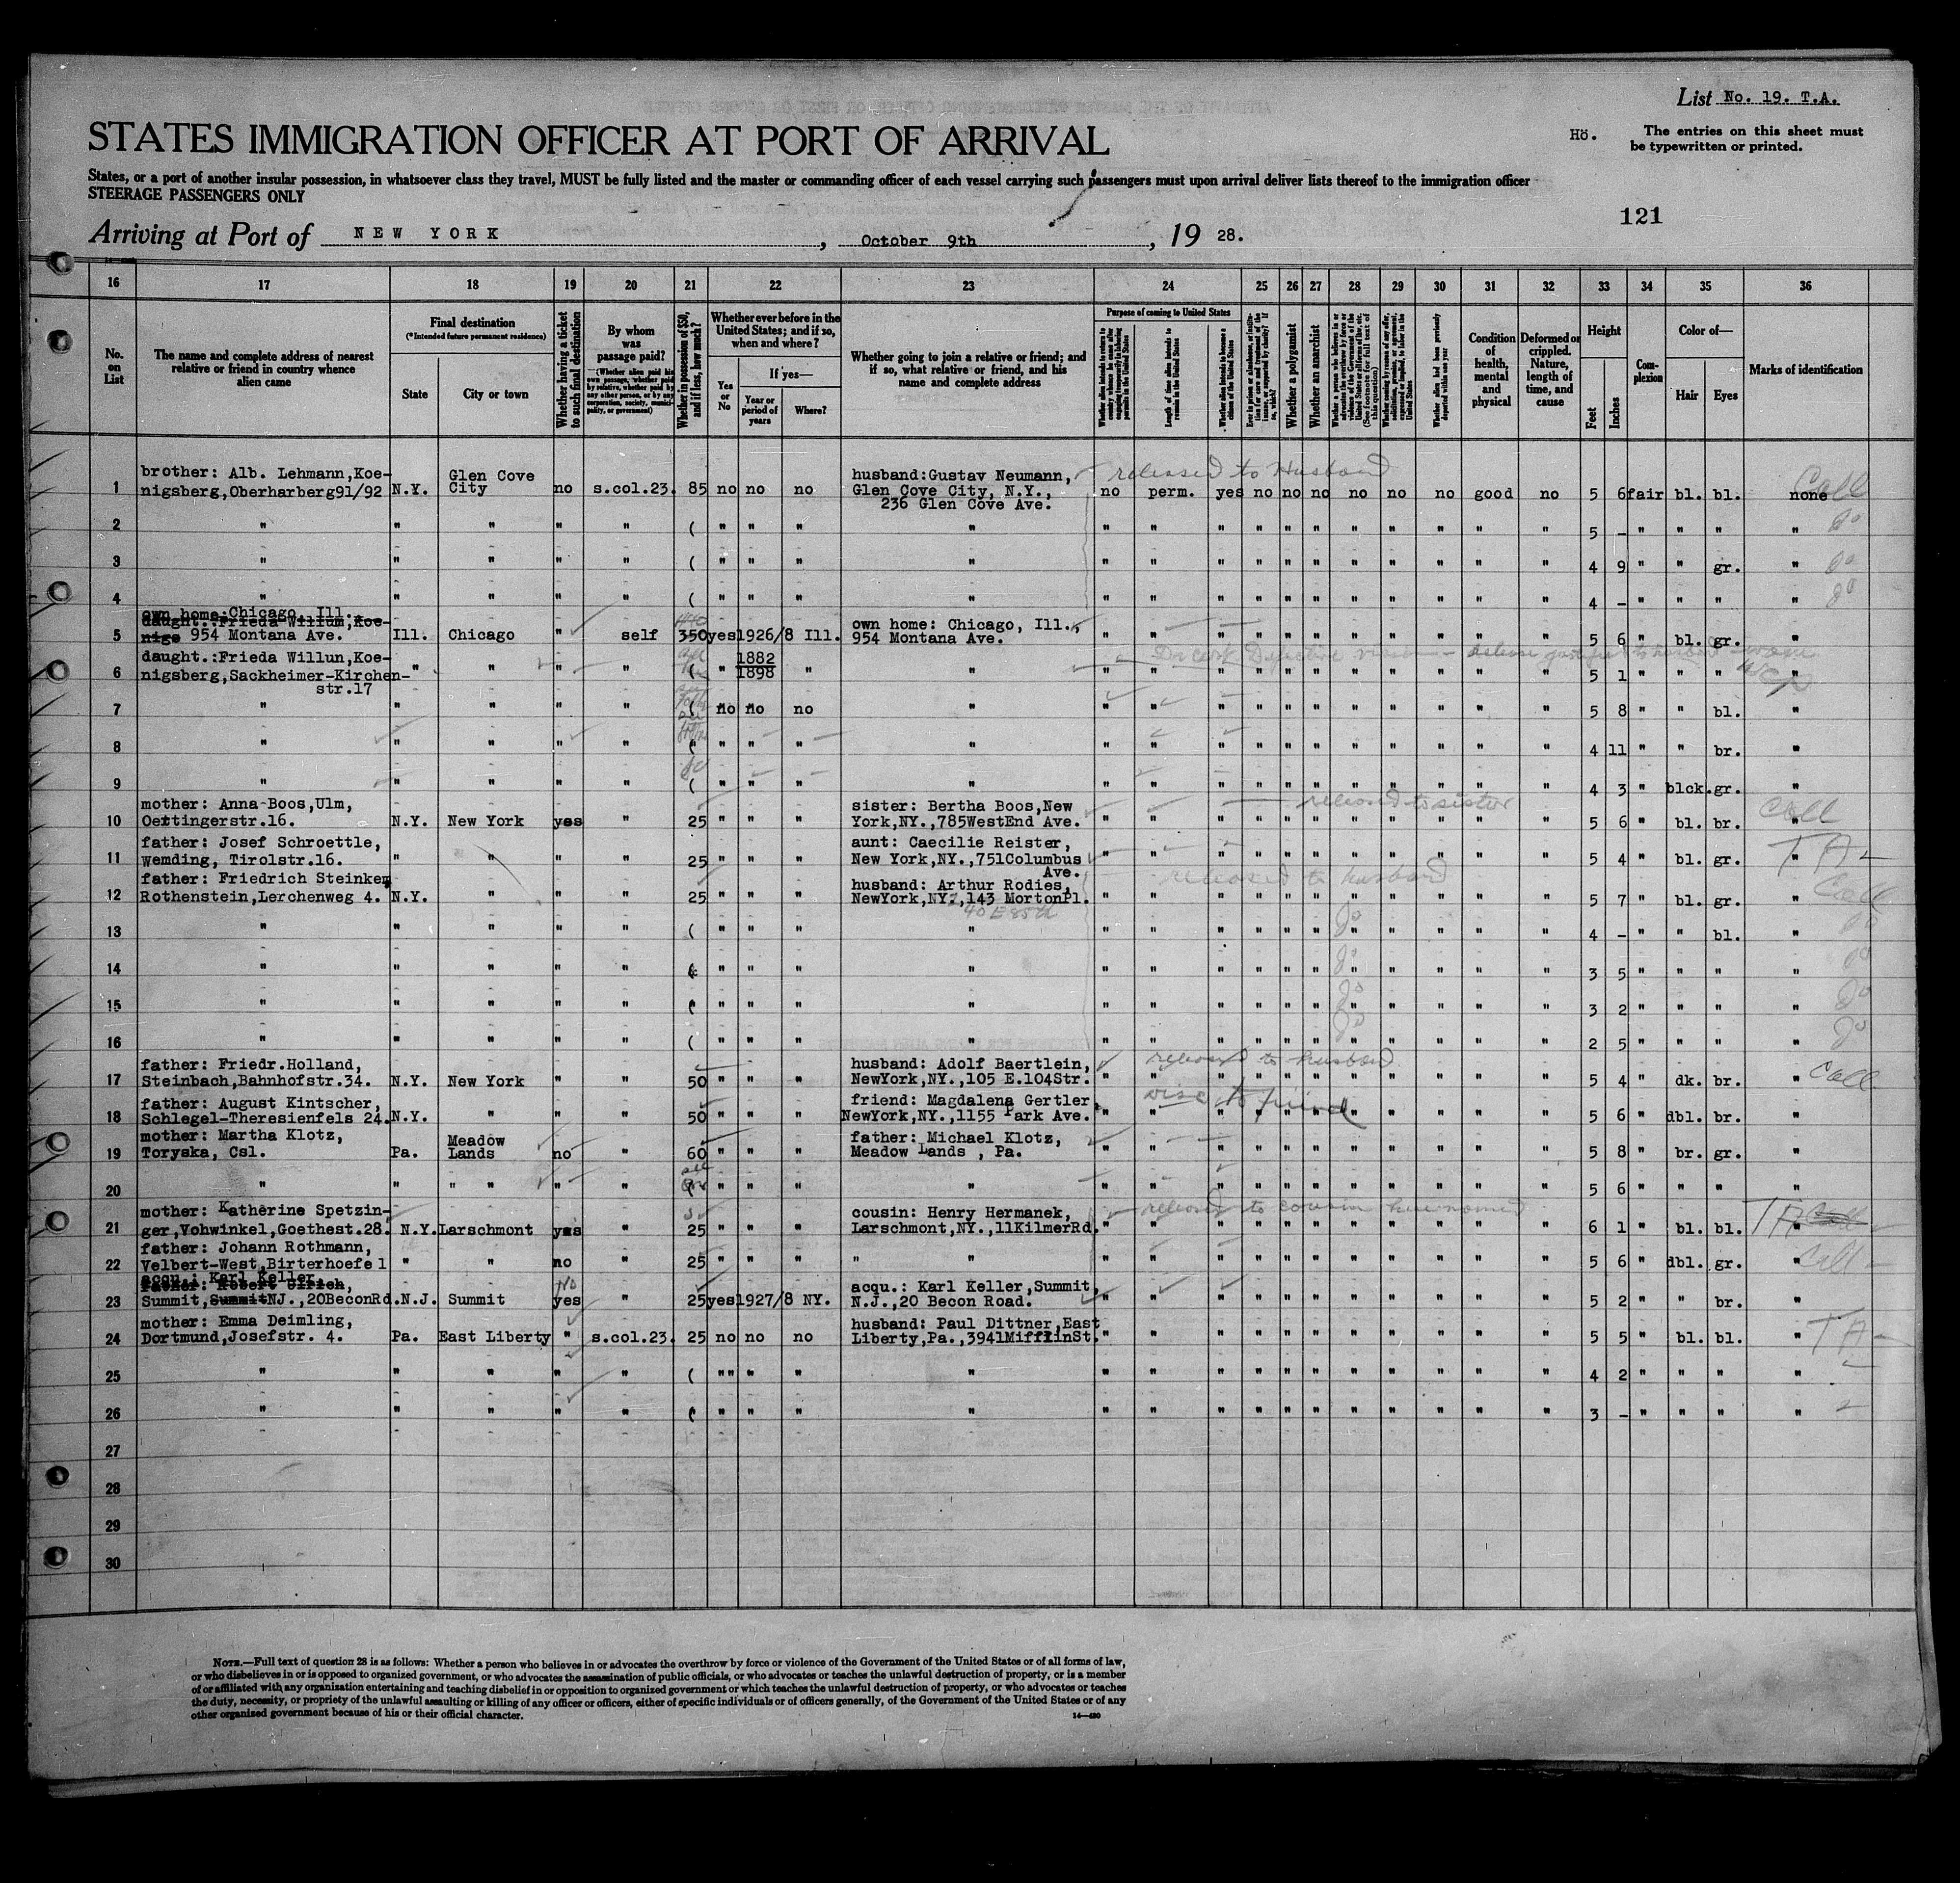 List No. 19. T.A.
STATES IMMIGRATION OFFICER AT PORT OF ARRIVAL
Hö.
The entries on this sheet must
be typewritten or printed.
States, or a port of another insular possession, in whatsoever class they travel, MUST be fully listed and the master or commanding officer of each vessel carrying such passengers must upon arrival deliver lists thereof to the immigration officer
STEERAGE PASSENGERS ONLY
121
Arriving at Port of NEW YORK, October 9th, 19 28.
16 17 18 19 20 21 22 23 24 25 26 27 28 29 30 31 32 33 34 35 36
No. on List
The name and complete address of nearest relative or friend in country whence alien came
Final destination
(*Intended future permanent residence)
State
City or town
Whether having a ticket to such final destination
By whom was passage paid?
Whether in possession of $50, and if less, how much?
Whether ever before in the United States; and if so, when and where?
Yes or No
If yes—
Year or period of years
Where?
Whether going to join a relative or friend; and if so, what relative or friend, and his name and complete address
Purpose of coming to United States
Length of time alien intends to remain in the United States
Whether alien intends to become a citizen of the United States
Whether a polygamist
Whether an anarchist
Condition of health, mental and physical
Deformed or crippled. Nature, length of time, and cause
Height
Feet
Inches
Complexion
Color of—
Hair
Eyes
Marks of identification
released to Husband
1 brother: Alb. Lehmann,Koe-
nigsberg,Oberharberg91/92 N.Y. Glen Cove City no s.col.23. 85 no no no husband:Gustav Neumann, Glen Cove City, N.Y., 236 Glen Cove Ave. no perm. yes no no no no no no good no 5 6 fair bl. bl. none Call
2 " " " " " ( " " " " " " " " " " " " " " " 5 - " " " " do
3 " " " " " ( " " " " " " " " " " " " " " " 4 9 " " gr. " do
4 " " " " " ( " " " " " " " " " " " " " " " 4 - " " " " do
own home:Chicago, Ill.
daught.:Frieda Willun,Koe-
5 nigs 954 Montana Ave. Ill. Chicago " self 350 yes 1926/8 Ill. own home: Chicago, Ill., 954 Montana Ave. " " " " " " " " " " " 5 6 " bl. gr. "
6 daught.:Frieda Willun,Koe-
nigsberg,Sackheimer-Kirchen-
str.17 " " " " ( " 1882 1898 " " " " " " " " " " " " " 5 1 " " " "
7 " " " " " ( no no no " " " " " " " " " " " " 5 8 " " bl. "
8 " " " " " ( " " " " " " " " " " " " " " " 4 11 " " br. "
9 " " " " " ( " " " " " " " " " " " " " " " 4 3 " blck. gr. "
released to sister
10 mother: Anna Boos,Ulm,
Oettingerstr.16. N.Y. New York yes " 25 " " " sister: Bertha Boos,New York,NY.,785WestEnd Ave. " " " " " " " " " " " 5 6 " bl. br. " Call
11 father: Josef Schroettle,
Wemding, Tirolstr.16. " " " " 25 " " " aunt: Caecilie Reister, New York,NY.,751Columbus Ave. " " " " " " " " " " " 5 4 " bl. gr. " TA
released to husband
12 father: Friedrich Steinkem
Rothenstein,Lerchenweg 4. N.Y. " " " 25 " " " husband: Arthur Rodies, NewYork,NY.,143 MortonPl. " " " " " " " " " " " 5 7 " bl. gr. " Call
40 E 85th
13 " " " " " ( " " " " " " " " " " " " " " " 4 - " " bl. " do
14 " " " " " ( " " " " " " " " " " " " " " " 3 5 " " " " do
15 " " " " " ( " " " " " " " " " " " " " " " 3 2 " " " " do
16 " " " " " ( " " " " " " " " " " " " " " " 2 5 " " " " do
released to husband
17 father: Friedr.Holland,
Steinbach,Bahnhofstr.34. N.Y. New York " " 50 " " " husband: Adolf Baertlein, NewYork,NY.,105 E.104Str. " " " " " " " " " " " 5 4 " dk. br. " Call
18 father: August Kintscher,
Schlegel-Theresienfels 24. N.Y. " " " 50 " " " friend: Magdalena Gertler, NewYork,NY.,1155 Park Ave. " " " " " " " " " " " 5 6 " dbl. br. "
to friend
19 mother: Martha Klotz,
Toryska, Csl. Pa. Meadow Lands no " 60 " " " father: Michael Klotz, Meadow Lands , Pa. " " " " " " " " " " " 5 8 " br. gr. "
20 " " " " " " ( " " " " " " " " " " " " " " " 5 6 " " " "
released to cousin here named
21 mother: Katherine Spetzin-
ger,Vohwinkel,Goethest.28. N.Y. Larschmont yes " 25 " " " cousin: Henry Hermanek, Larschmont,NY.,11KilmerRd. " " " " " " " " " " " 6 1 " bl. bl. " TA
22 father: Johann Rothmann,
Velbert-West,Birterhoefe 1 " " no " 25 " " " " " " " " " " " " " " " " " 5 6 " dbl. gr. " Call
acqu.: Karl Keller,
father: Robert Ulrich,
23 Summit,Summit NJ.,20BeconRd. N.J. Summit No yes " 25 yes 1927/8 NY. acqu.: Karl Keller,Summit, N.J.,20 Becon Road. " " " " " " " " " " " 5 2 " " br. "
24 mother: Emma Deimling,
Dortmund,Josefstr. 4. Pa. East Liberty " s.col.23. 25 no no no husband: Paul Dittner,East Liberty,Pa.,3941MifflinSt. " " " " " " " " " " " 5 5 " bl. bl. " TA
25 " " " " " ( "" " " " " " " " " " " " " " " 4 2 " " " "
26 " " " " " ( " " " " " " " " " " " " " " " 3 - " " " "
27
28
29
30
NOTE.—Full text of question 28 is as follows: Whether a person who believes in or advocates the overthrow by force or violence of the Government of the United States or of all forms of law,
or who disbelieves in or is opposed to organized government, or who advocates the assassination of public officials, or who advocates or teaches the unlawful destruction of property, or is a member
of or affiliated with any organization entertaining and teaching disbelief in or opposition to organized government or which teaches the unlawful destruction of property, or who advocates or teaches
the duty, necessity, or propriety of the unlawful assaulting or killing of any officer or officers, either of specific individuals or of officers generally, of the Government of the United States or of any
other organized government because of his or their official character.
14—430